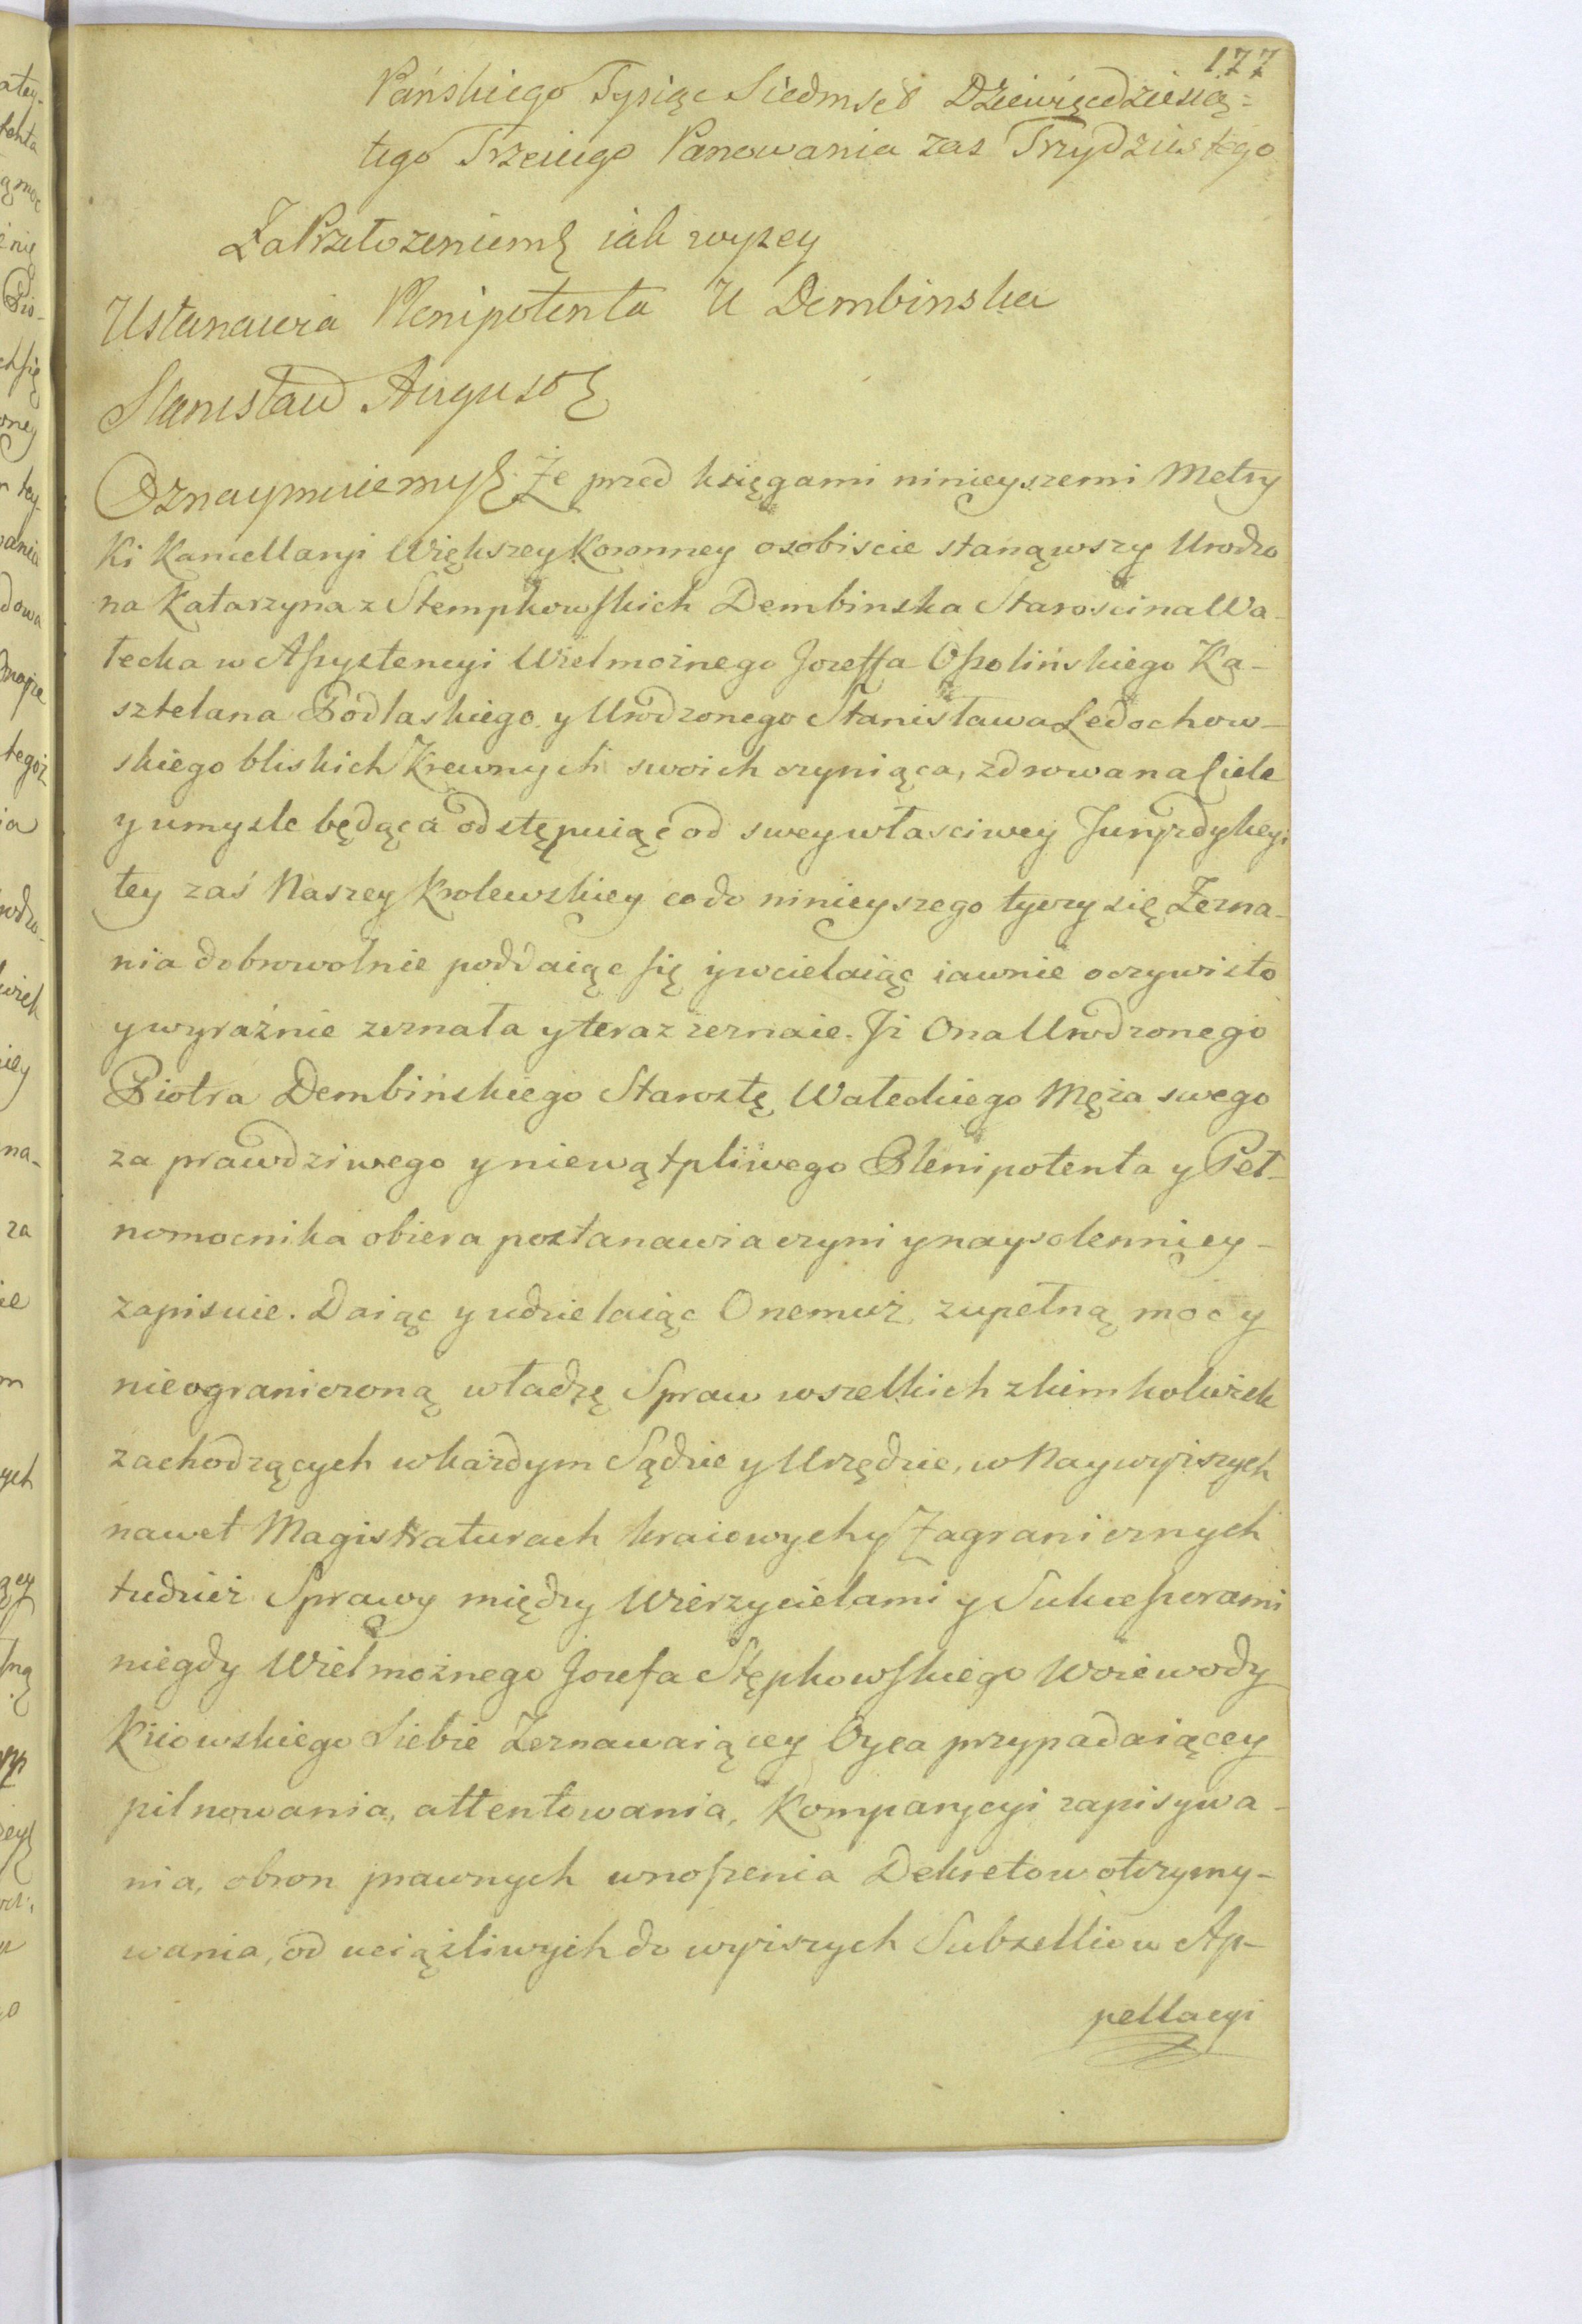 177
Pańskiego Tysiąc Siedmset Dziewięcdziesią=
tego Trzeciego Panowania zas Trzydziestego
Za Przełozeniem jak wyzey
Ustanawia Plenipotenta U Dembinska
Stanisław August
Oznaymuiemy Że przed księgami ninieyszemi Metry
Ki Kancellaryi Większey Koronney osobiscie stanąwszy Urodzo
na Katarzyna z Stempkowskich Dembinska Starościna Wa-
łecka w Assystencyi Wielmożnego Jozeffa Ossolińskiego Ka-
sztelana Podlaskiego y Urodzonego Stanisława Ledochow-
skiego bliskich Krewnych swoich czyniąca, zdrowa na Ciele
y umysle będąca odstępuiąc od swey własciwey Juryzdykcyi
tey zaś Naszey Krolewskiey co do ninieyszego tyczy się Zezna-
nia dobrowolnie poddaiąc się y wcielaiąc iawnie oczywisto
y wyraźnie zeznała y teraz zeznaie. Jż Ona Urodzonego
Piotra Dembińskiego Starostę Wałeckiego Męża swego
za prawdziwego y niewątpliwego Plenipotenta y Peł-
nomocnika obiera postanawia czyni y naysolenniey-
zapisuie. Daiąc y udzielaiąc Onemuż zupełną moc y
nieograniczoną władzę Spraw wszelkich z kimkolwiek
zachodzących w każdym Sądzie y Urzędzie, w Naywyższych
nawet Magistraturach kraiowych y Zagranicznych
tudzież Sprawy między Wierzycielami y Sukcessorami
niegdy Wielmożnego Jozefa Stępkowskiego Woiewody
Kiiowskiego Siebie Zeznawaiącey Oyca przypadaiącey
pilnowania, attentowania, Komparycyi zapisywa-
nia, obron prawnych wnoszenia Dekretow otrzymy-
wania, od uciążliwych do wyższych Subselliow Ap-
pellacyi